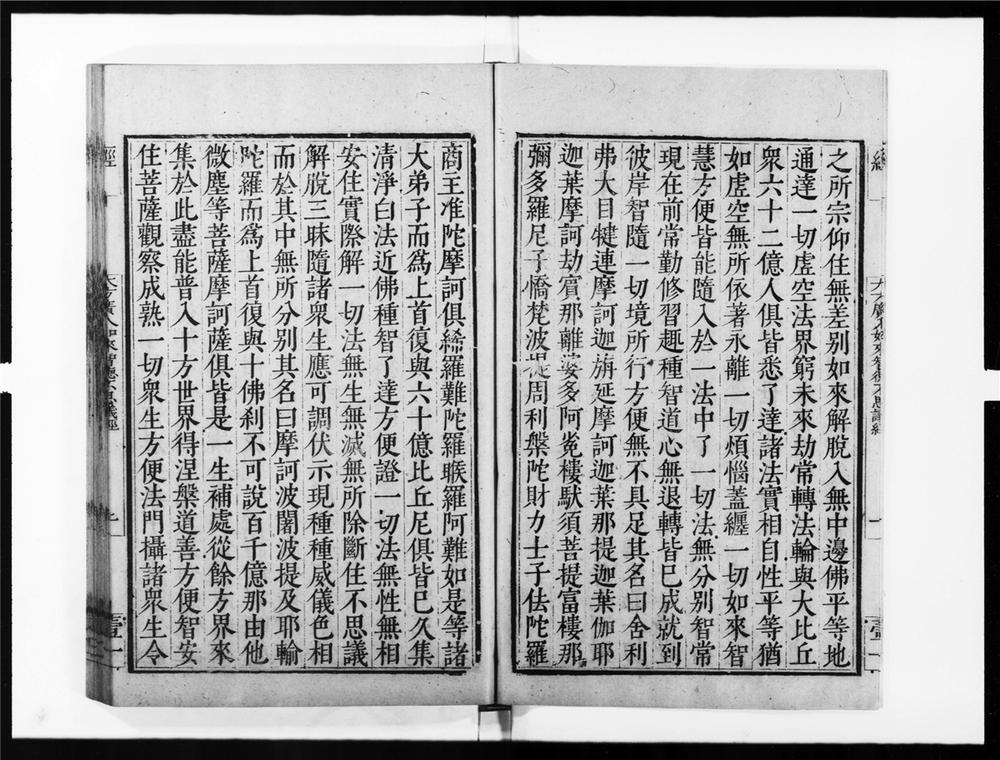 經
大方廣入如來智德不思議經
一
壹一
之所宗仰住無差别如來解脫入無中邊佛平等地
通達一切虛空法界窮未來劫常轉法輪與大比丘
衆六十二億人俱皆悉了達諸法實相自性平等猶
如虛空無所依著永離一切煩惱蓋纏一切如來智
慧方便皆能隨入於一法中了一切法無分别智常
現在前常勤修習趣種智道心無退轉皆已成就到
彼岸智隨一切境所行方便無不具足其名曰舍利
弗大目犍連摩訶迦旃延摩訶迦葉那提迦葉伽耶
迦葉摩訶劫賔那離婆多阿㝹樓馱須菩提富樓那
彌多羅尼子憍梵波提周利槃陀財力士子佉陀羅
商主准陀摩訶俱絺羅難陀羅睺羅阿難如是等諸
大弟子而爲上首復與六十億比丘尼俱皆已久集
清淨白法近佛種智了達方便證一切法無性無相
安住實際解一切法無生無滅無所除斷住不思議
解脫三昧隨諸衆生應可調伏示現種種威儀色相
而於其中無所分别其名曰摩訶波闍波提及耶輸
陀羅而爲上首復與十佛剎不可說百千億那由他
微塵等菩薩摩訶薩俱皆是一生補處從餘方界來
集於此盡能普入十方世界得涅槃道善方便智安
住菩薩觀察成熟一切衆生方便法門攝諸衆生令
經
壹一